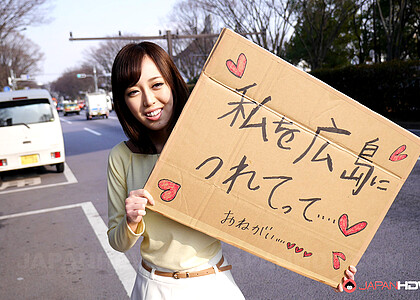 私を広島に
つれてって....
おねがい....
JAPANHD